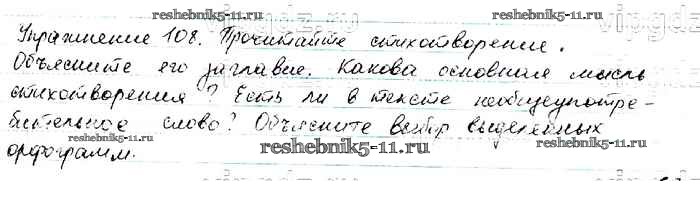 reshebnik5-11.ru
reshebnik5-11.ru
vipgdz
Упражнение 108. Прочитайте стихотворение.
Объясните его заглавие. Какова основная мысль
стихотворения? Есть ли в тексте необщеупотре-
бительное слово? Объясните выбор выделенных
орфограмм.
reshebnik5-11.ru
reshebnik5-11.ru